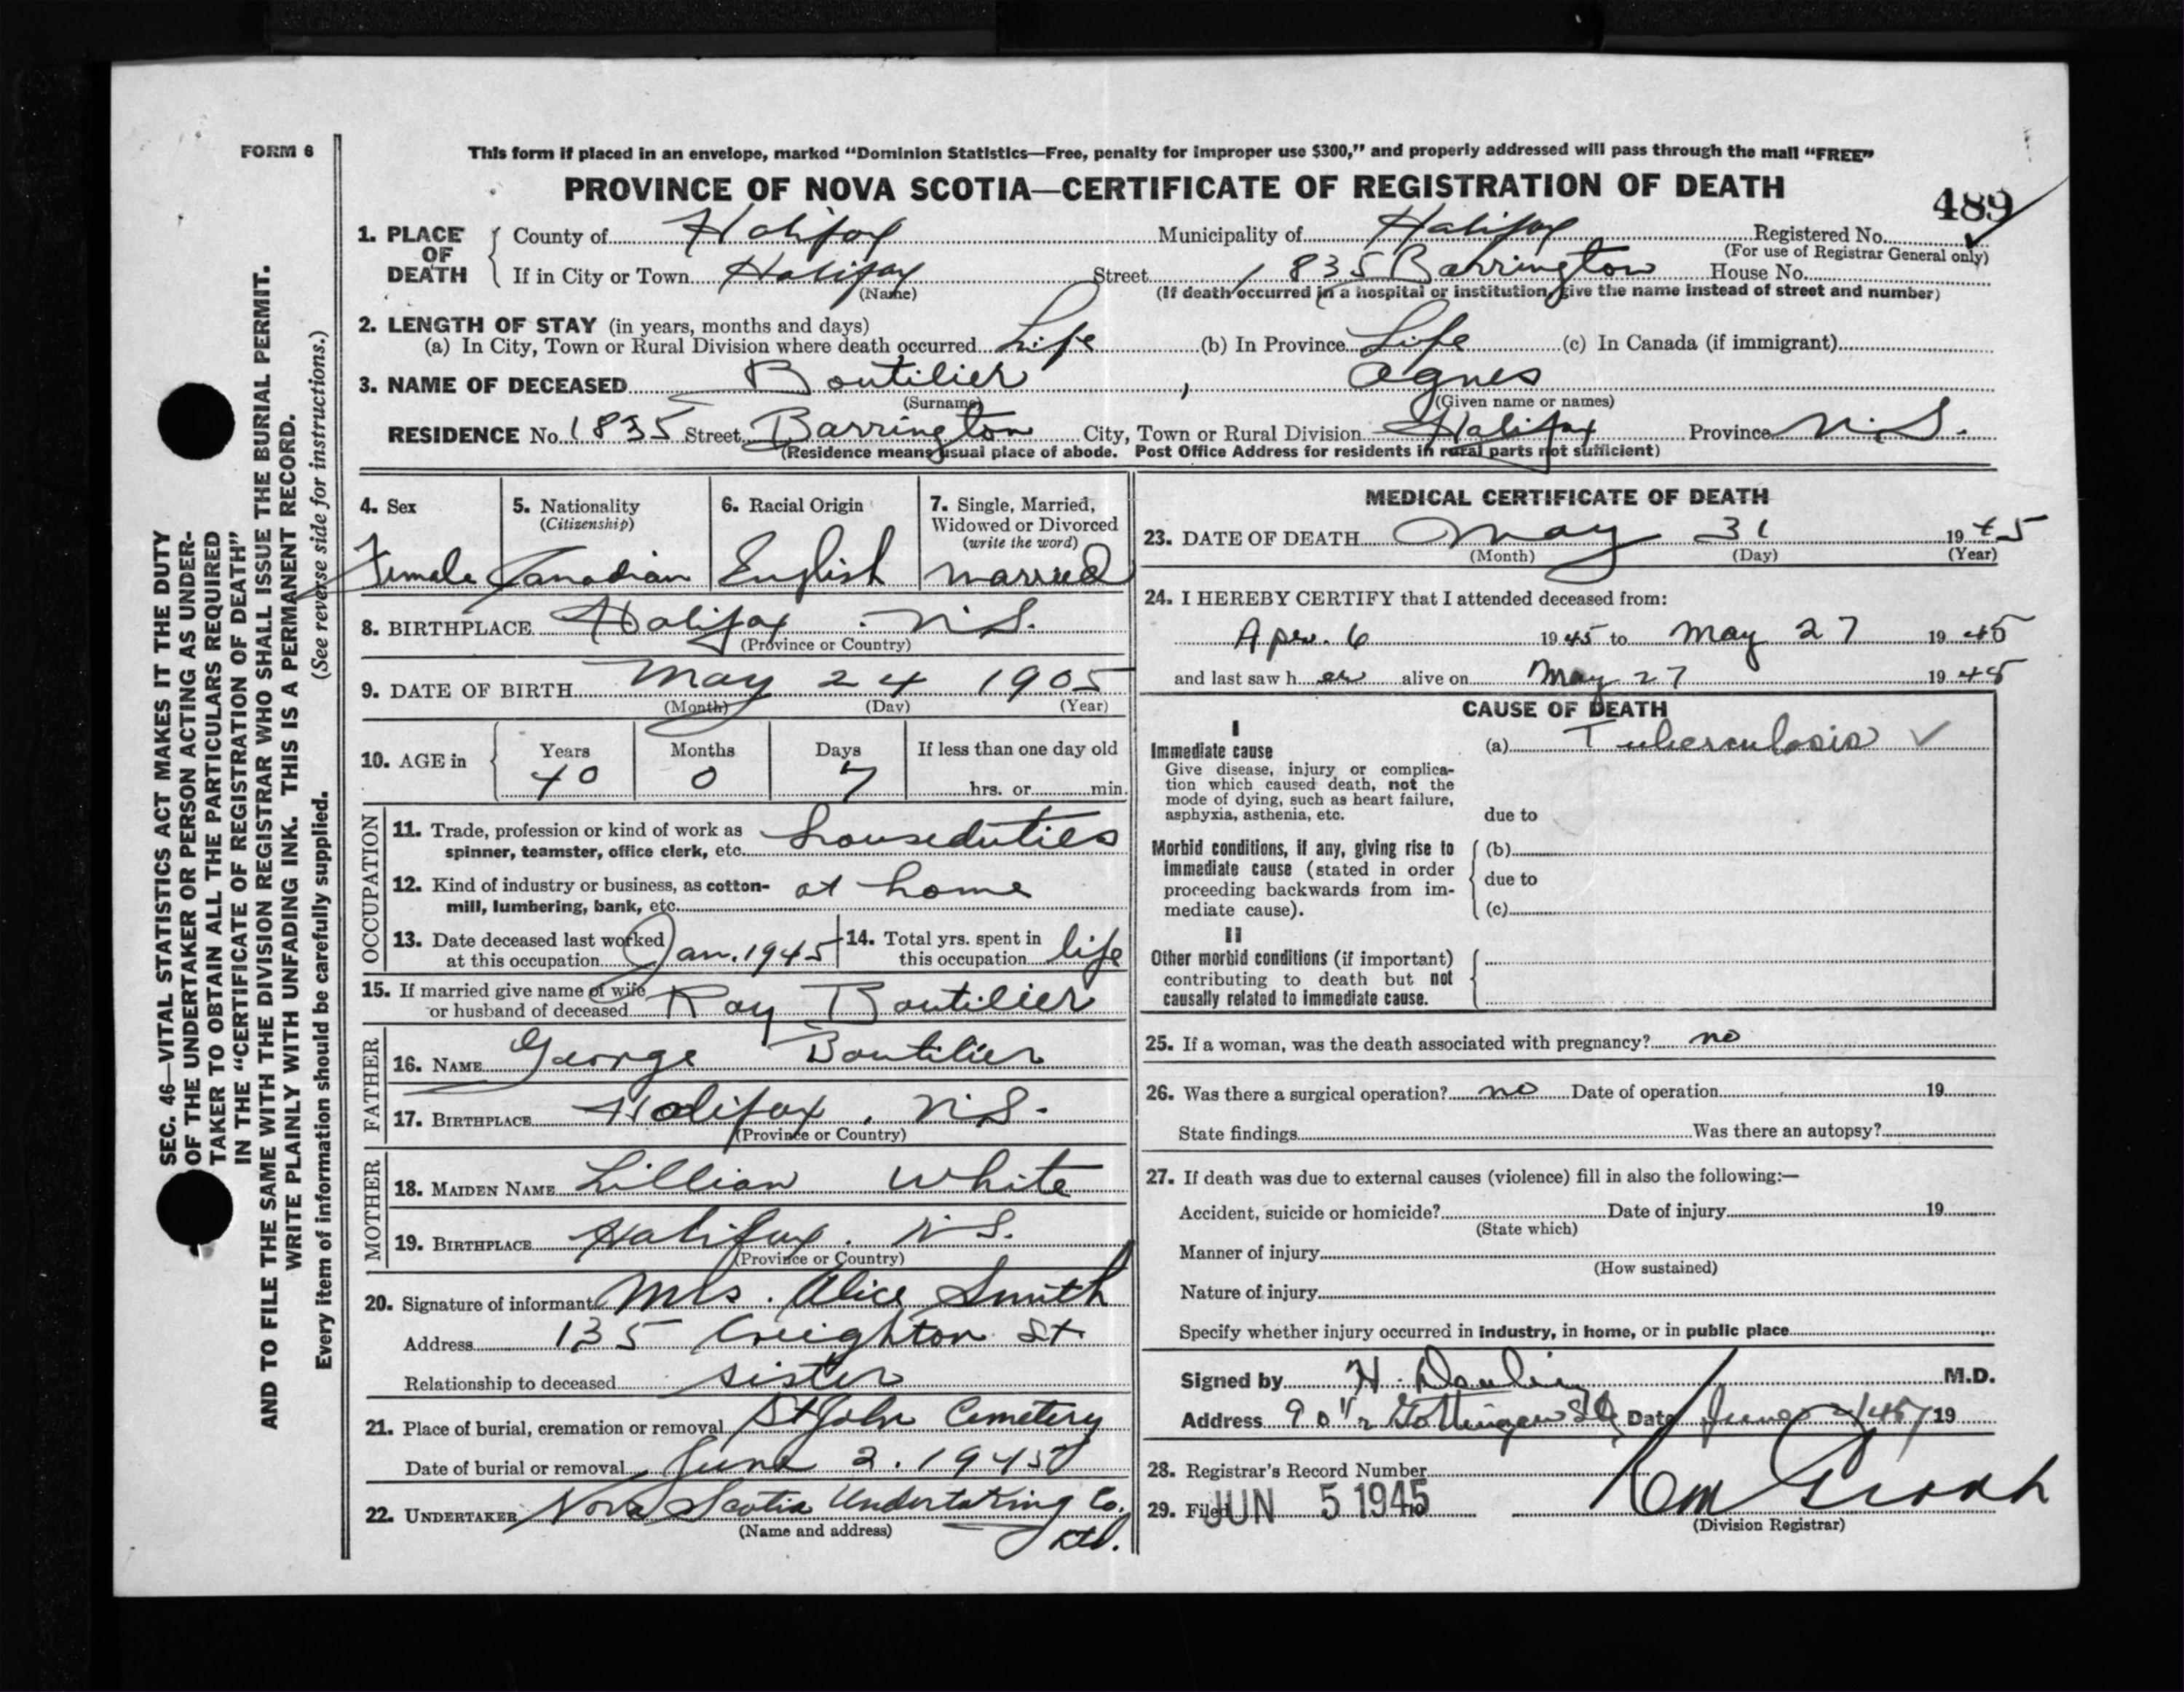 FORM 6
This form if placed in an envelope, marked "Dominion Statistics—Free, penalty for improper use $300," and properly addressed will pass through the mail "FREE"
PROVINCE OF NOVA SCOTIA—CERTIFICATE OF REGISTRATION OF DEATH
489
1. PLACE OF DEATH
County of Halifax Municipality of Halifax Registered No.
(For use of Registrar General only)
If in City or Town Halifax Street 1835 Barrington House No.
(Name) (If death occurred in a hospital or institution, give the name instead of street and number)
2. LENGTH OF STAY (in years, months and days)
(a) In City, Town or Rural Division where death occurred Life (b) In Province Life (c) In Canada (if immigrant)
3. NAME OF DECEASED Boutilier , Agnes
(Surname) (Given name or names)
RESIDENCE No. 1835 Street Barrington City, Town or Rural Division Halifax Province N.S.
(Residence means usual place of abode. Post Office Address for residents in rural parts not sufficient)
4. Sex
Female
5. Nationality
(Citizenship)
Canadian
6. Racial Origin
English
7. Single, Married,
Widowed or Divorced
(write the word)
Married
8. BIRTHPLACE Halifax . N.S.
(Province or Country)
9. DATE OF BIRTH May 24 1905
(Month) (Day) (Year)
10. AGE in
Years Months Days If less than one day old
40 0 7 hrs. or min.
OCCUPATION
11. Trade, profession or kind of work as
spinner, teamster, office clerk, etc. houseduties
12. Kind of industry or business, as cotton-
mill, lumbering, bank, etc. at home
13. Date deceased last worked
at this occupation Jan. 1945
14. Total yrs. spent in
this occupation life
15. If married give name of wife
or husband of deceased Ray Boutilier
FATHER
16. NAME George Boutilier
17. BIRTHPLACE Halifax . N.S.
(Province or Country)
MOTHER
18. MAIDEN NAME Lillian White
19. BIRTHPLACE Halifax . N.S.
(Province or Country)
20. Signature of informant Mrs. Alice Smith
Address 135 Creighton St
Relationship to deceased sister
21. Place of burial, cremation or removal St John Cemetery
Date of burial or removal June 2. 1945
22. UNDERTAKER Nova Scotia Undertaking Co.
(Name and address) Ltd.
MEDICAL CERTIFICATE OF DEATH
23. DATE OF DEATH May 31 1945
(Month) (Day) (Year)
24. I HEREBY CERTIFY that I attended deceased from:
Apr. 6 1945 to May 27 1945
and last saw her alive on May 27 1945
CAUSE OF DEATH
I
Immediate cause
Give disease, injury or complica-
tion which caused death, not the
mode of dying, such as heart failure,
asphyxia, asthenia, etc.
(a) Tuberculosis ✓
due to
Morbid conditions, if any, giving rise to
immediate cause (stated in order
proceeding backwards from im-
mediate cause).
(b)
due to
(c)
II
Other morbid conditions (if important)
contributing to death but not
causally related to immediate cause.
25. If a woman, was the death associated with pregnancy? no
26. Was there a surgical operation? no Date of operation 19
State findings Was there an autopsy?
27. If death was due to external causes (violence) fill in also the following:—
Accident, suicide or homicide? Date of injury 19
(State which)
Manner of injury
(How sustained)
Nature of injury
Specify whether injury occurred in industry, in home, or in public place
Signed by H. M.D.
Address 90 1/2 Gottingen St Date June 19
28. Registrar's Record Number
29. Filed JUN 5 1945 19
(Division Registrar)
SEC. 46—VITAL STATISTICS ACT MAKES IT THE DUTY
OF THE UNDERTAKER OR PERSON ACTING AS UNDER-
TAKER TO OBTAIN ALL THE PARTICULARS REQUIRED
IN THE "CERTIFICATE OF REGISTRATION OF DEATH"
AND TO FILE THE SAME WITH THE DIVISION REGISTRAR WHO SHALL ISSUE THE BURIAL PERMIT.
WRITE PLAINLY WITH UNFADING INK. THIS IS A PERMANENT RECORD.
Every item of information should be carefully supplied. (See reverse side for instructions.)